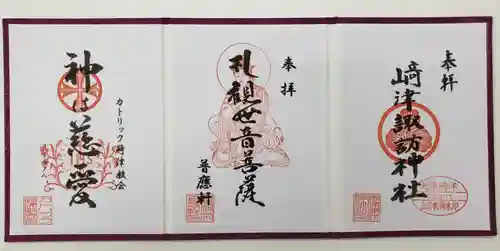 奉拝
﨑津諏訪神社
奉拝
札観世音菩薩
普應軒
神は慈愛
カトリック﨑津教会